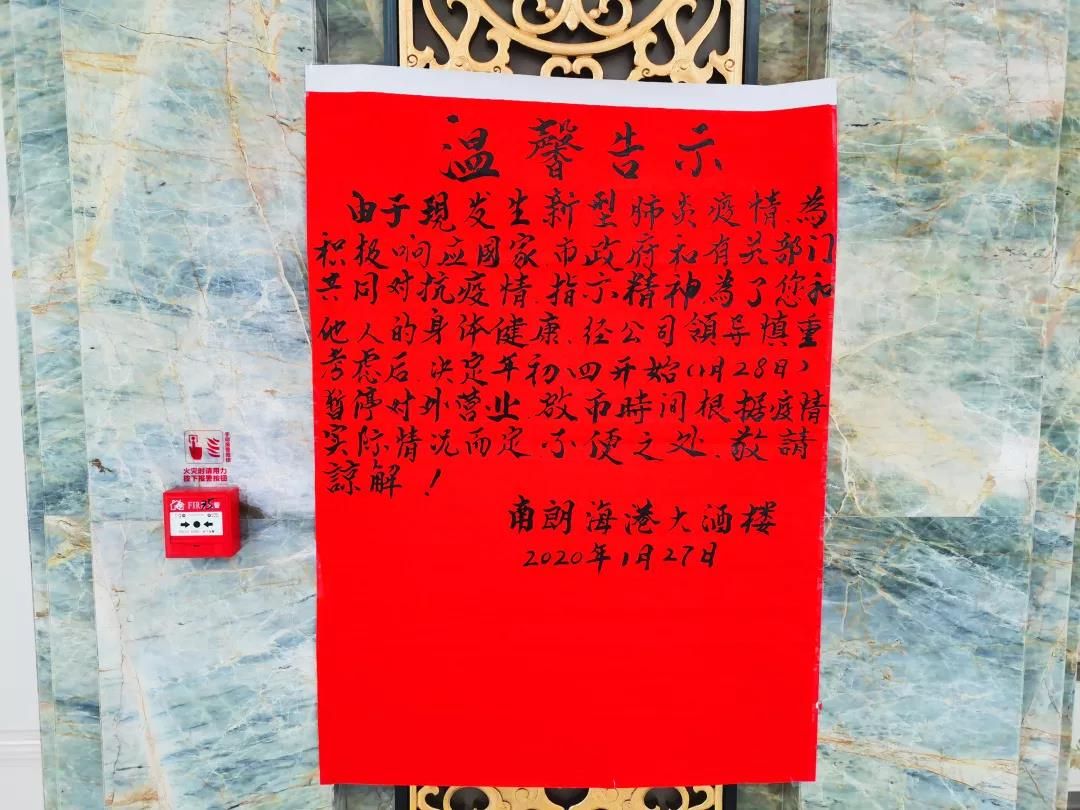 温馨告示
由于現发生新型肺炎疫情.為
积极响应國家市政府和有关部门
共同对抗疫情.指示精神為了您和
他人的身体健康.经公司領导慎重
考虑后.决定年初四开始(1月28日)
暂停对外营业.敬市時间根据疫情
实际情况而定.不便之处.敬請
諒解!
南朗海港大酒楼
2020年1月27日
火灾时请用力
按下报警按钮
FIRE